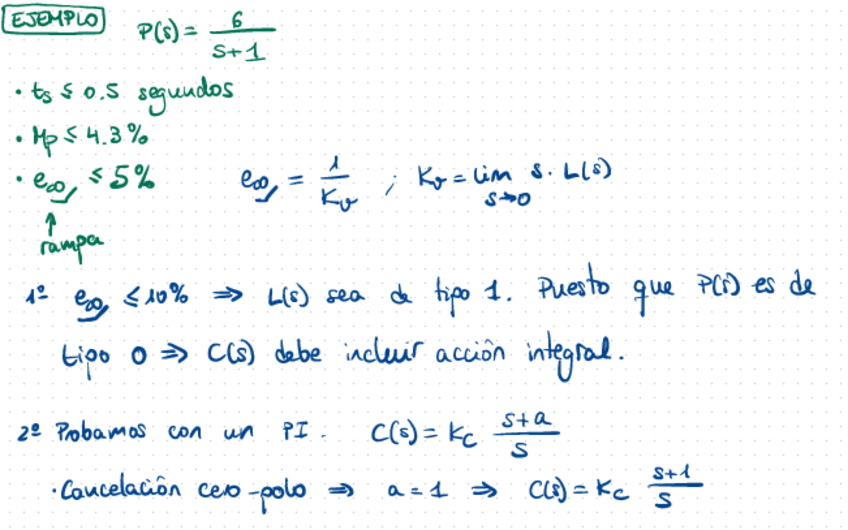 EJEMPLO P(s) = 6/(s+1)
• ts ≤ 0.5 segundos
• Mp ≤ 4.3%
• e∞ ≤ 5% e∞ = 1/Kv ; Kv = lim s→0 s · L(s)
↑
rampa
1º e∞ ≤ 10% ⇒ L(s) sea de tipo 1. Puesto que P(s) es de
tipo 0 ⇒ C(s) debe incluir acción integral.
2º Probamos con un PI. C(s) = Kc (s+a)/s
· Cancelación cero-polo ⇒ a = 1 ⇒ C(s) = Kc (s+1)/s